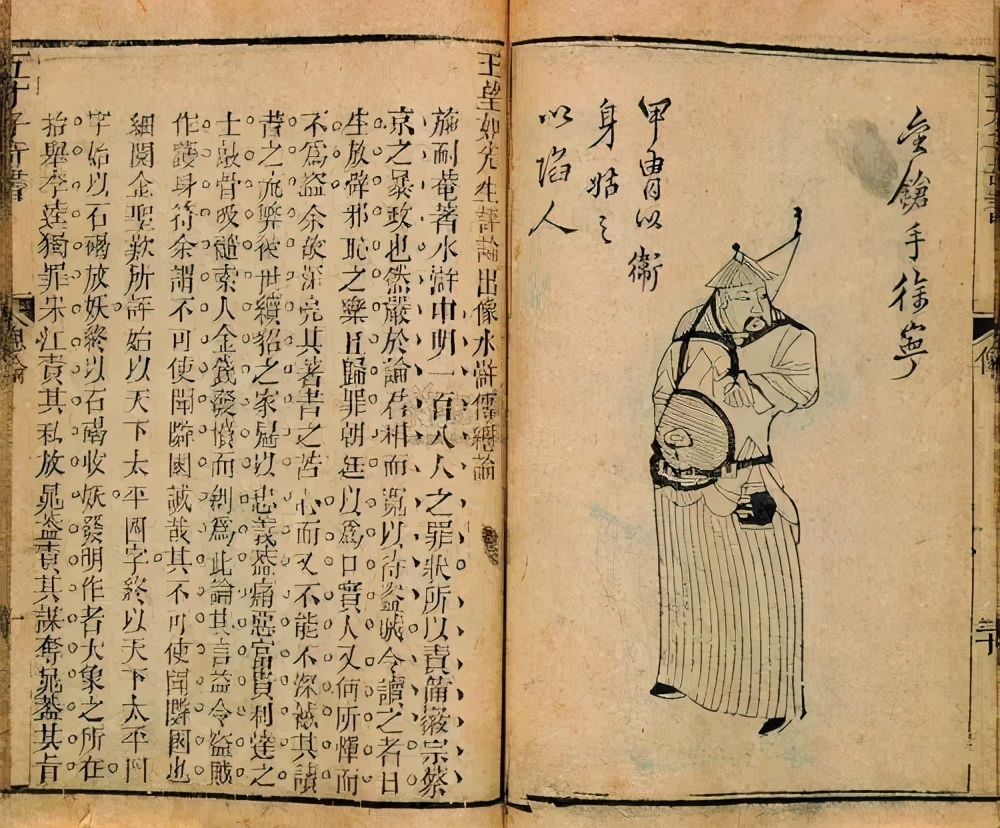 金鎗手徐寧
甲冑以衛
身姑之
以陷人
像
三十
王望如先生評論出像水滸傳總論
施耐菴著水滸申明一百八人之罪狀所以責備徽宗蔡
京之暴政也然嚴於論君相而寬以待盜賊令讀之者日
生放辟邪恥之樂且歸罪朝廷以為口實人又何所憚而
不為盜余故深亮其著書之苦心而又不能不深憾其讀
書之流弊後世續貂之家冠以忠義蓋痛惡富貴利達之
士敲骨吸髓索人金錢發憤而創為此論其言益令盜賊
作護身符余謂不可使聞鄰國誠哉其不可使聞鄰國也
細閱金聖歎所評始以天下太平四字終以天下太平四
字始以石碣放妖終以石碣收妖發明作者大象之所在
抬舉李逵獨罪宋江責其私放晁蓋責其謀奪晁蓋其旨
五才子奇書
總論
一